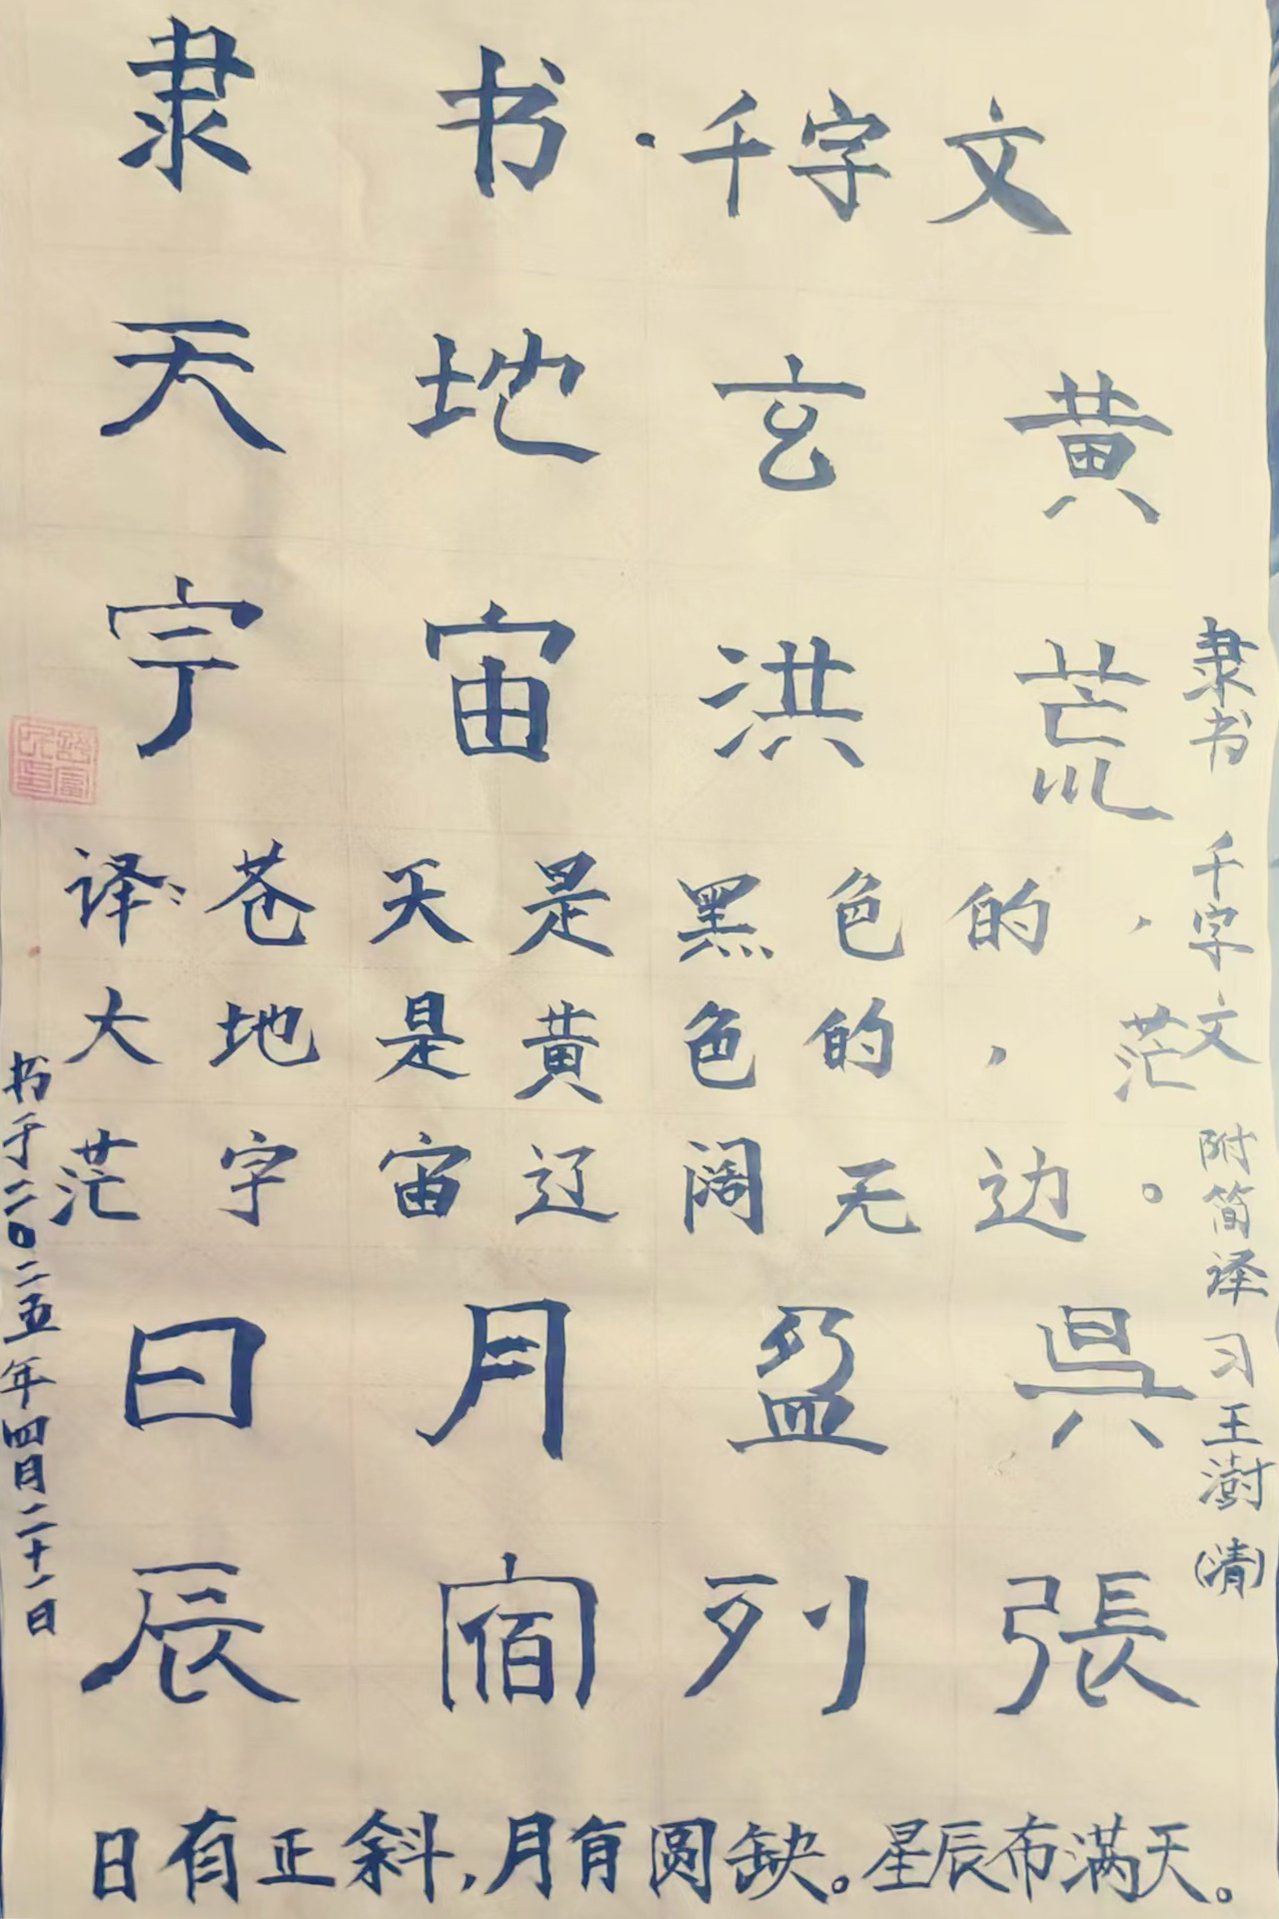 隶书·千字文
天地玄黄
宇宙洪荒
译:苍天是黑色的,
大地是黄色的,茫
茫字宙辽阔无边。
日月盈昃
辰宿列張
日有正斜,月有圆缺。星辰布满天。
隶书 千字文 附简译 习王澍(清)
书于二〇二五年四月二十一日